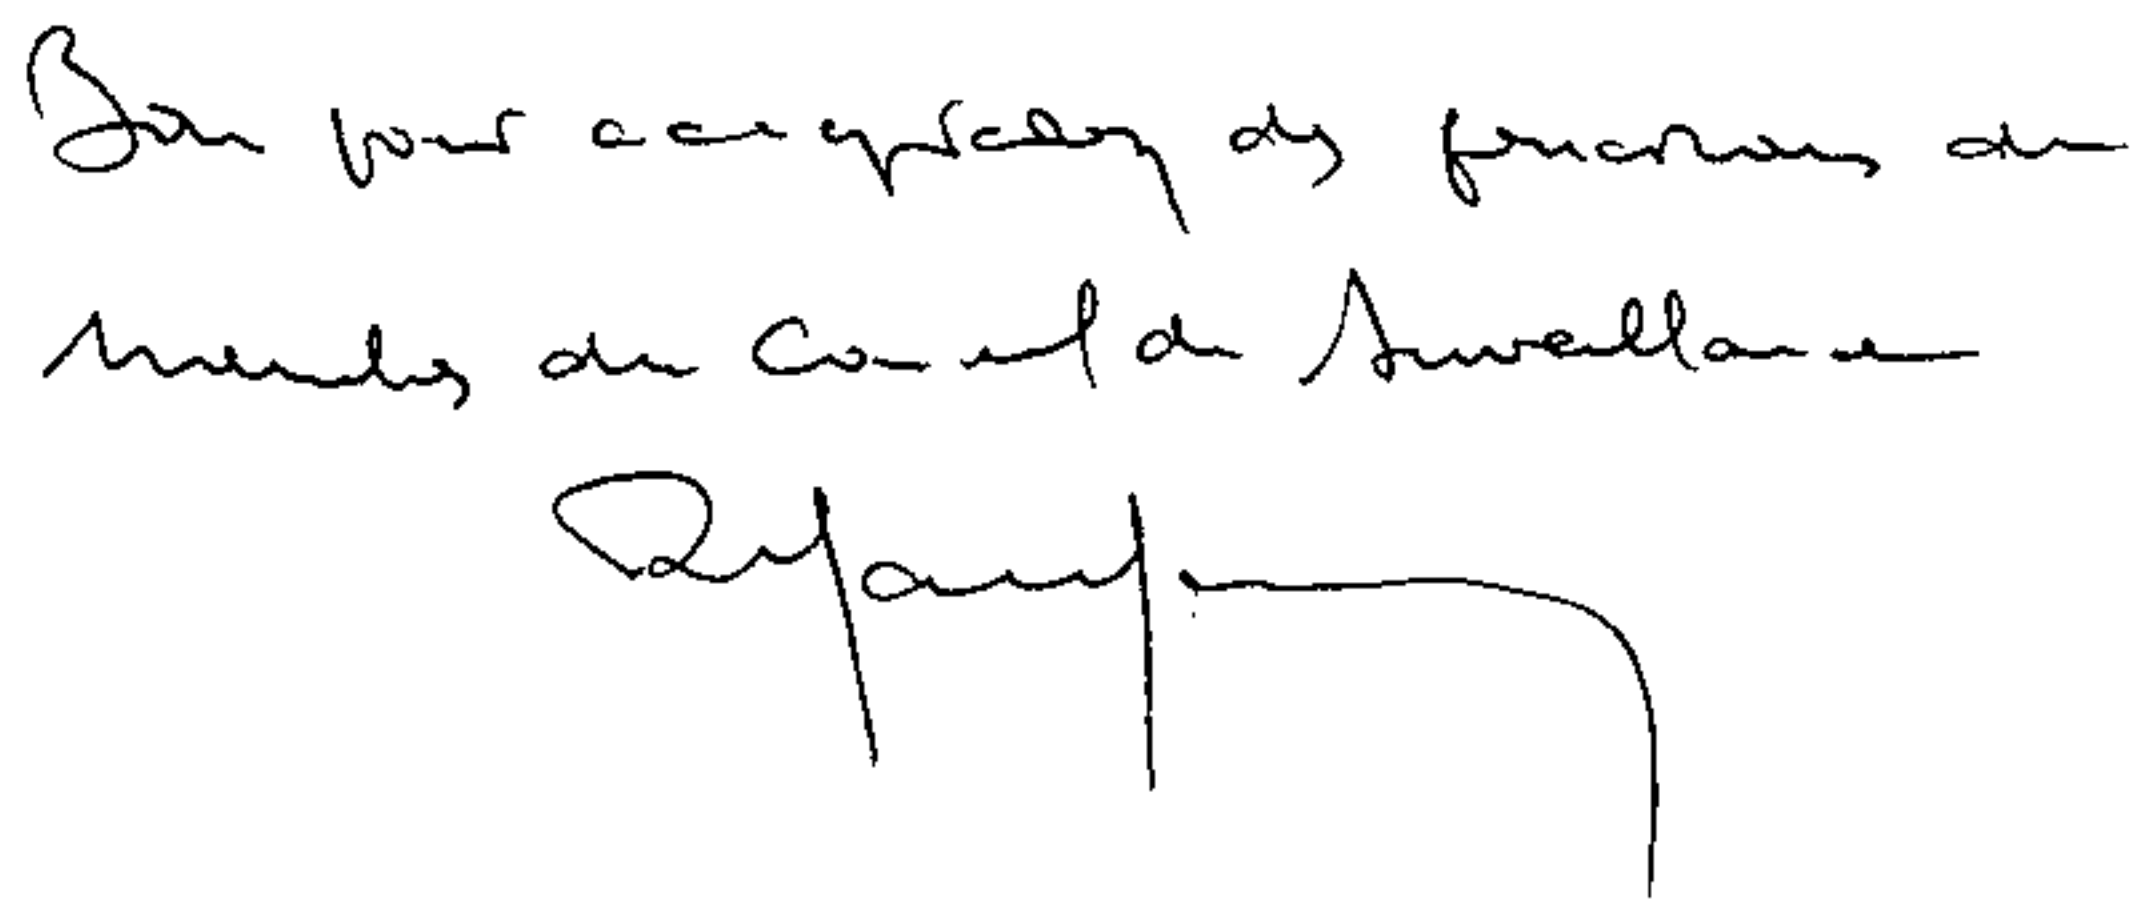 Bon pour acceptation des fonctions de
Membre du Conseil de Surveillance